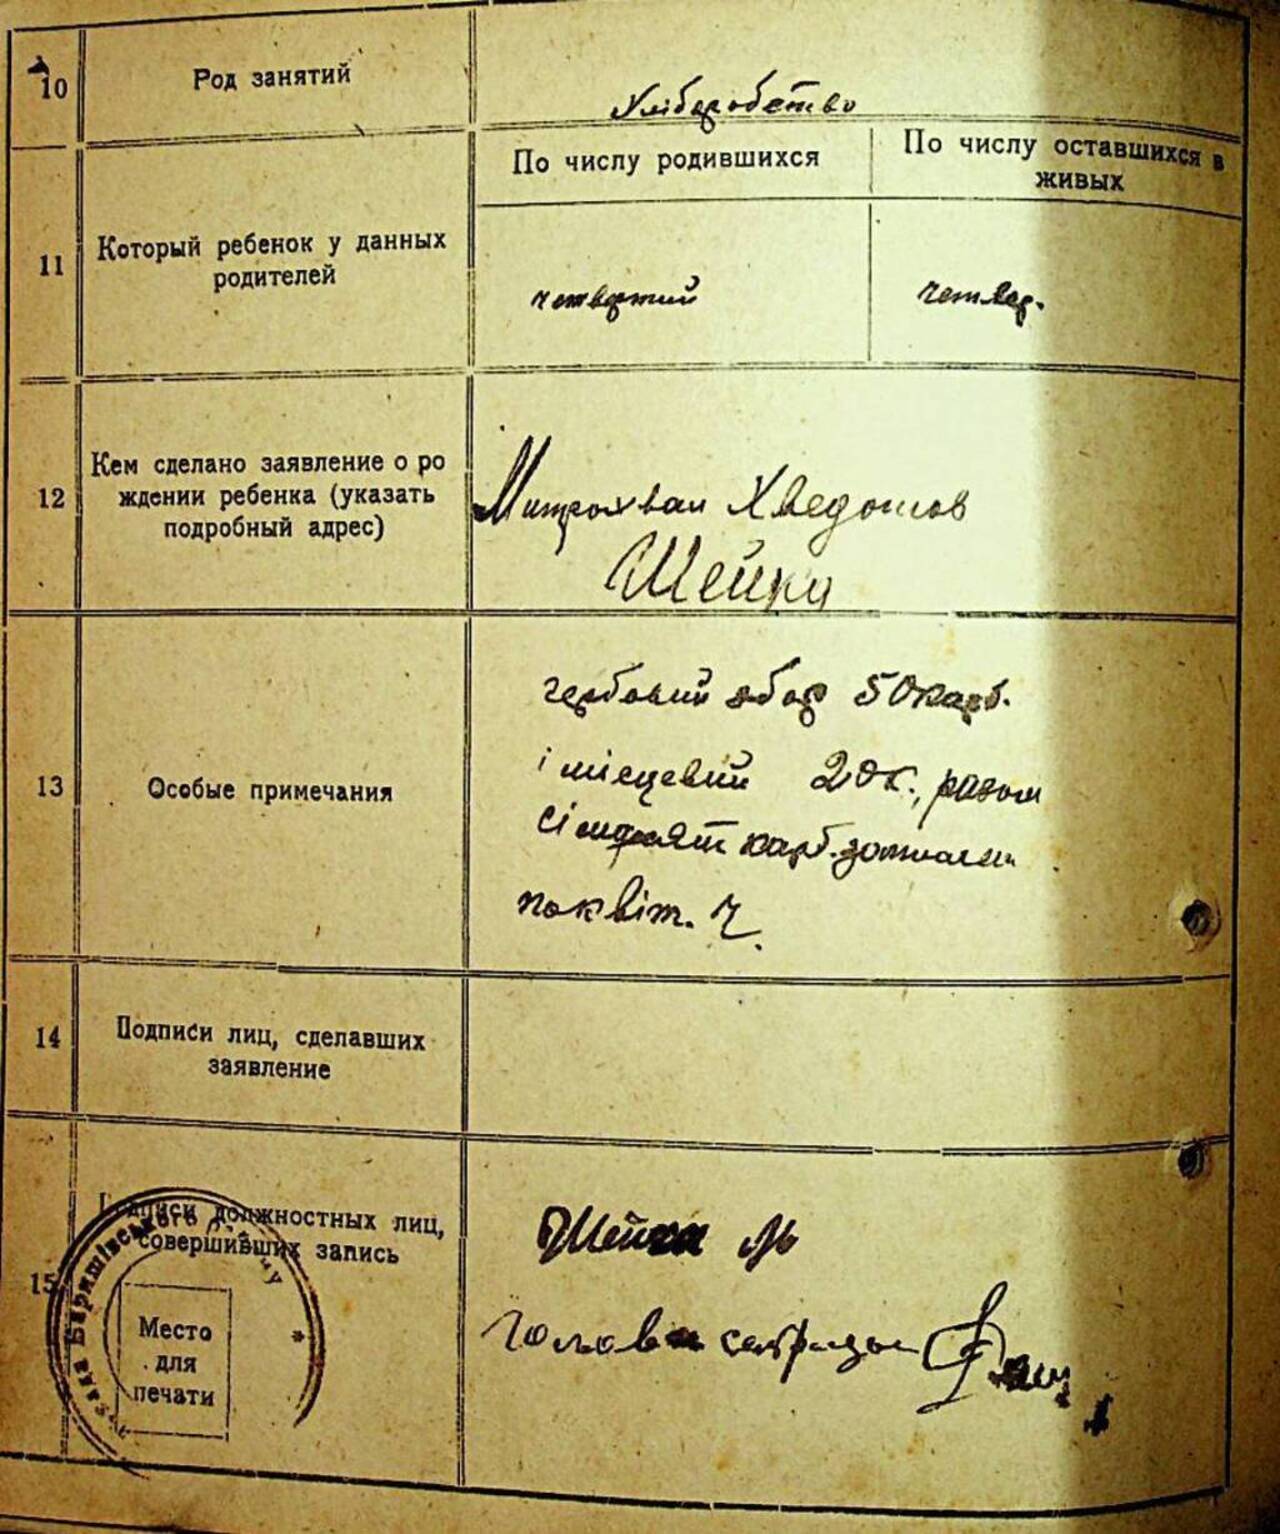 10
Род занятий
Хліборобство
11
Который ребенок у данных
родителей
По числу родившихся
По числу оставшихся в
живых
четвертий
четвер.
12
Кем сделано заявление о ро
ждении ребенка (указать
подробный адрес)
Митрохван Хведотов
Шейко
13
Особые примечания
гербовий збор 50 карб.
і місцевий 20 к., разом
сімдесят карб.
по квіт. Ч.
14
Подписи лиц, сделавших
заявление
15
Подписи должностных лиц,
совершивших запись
Место
для
печати
Шейко
Голова